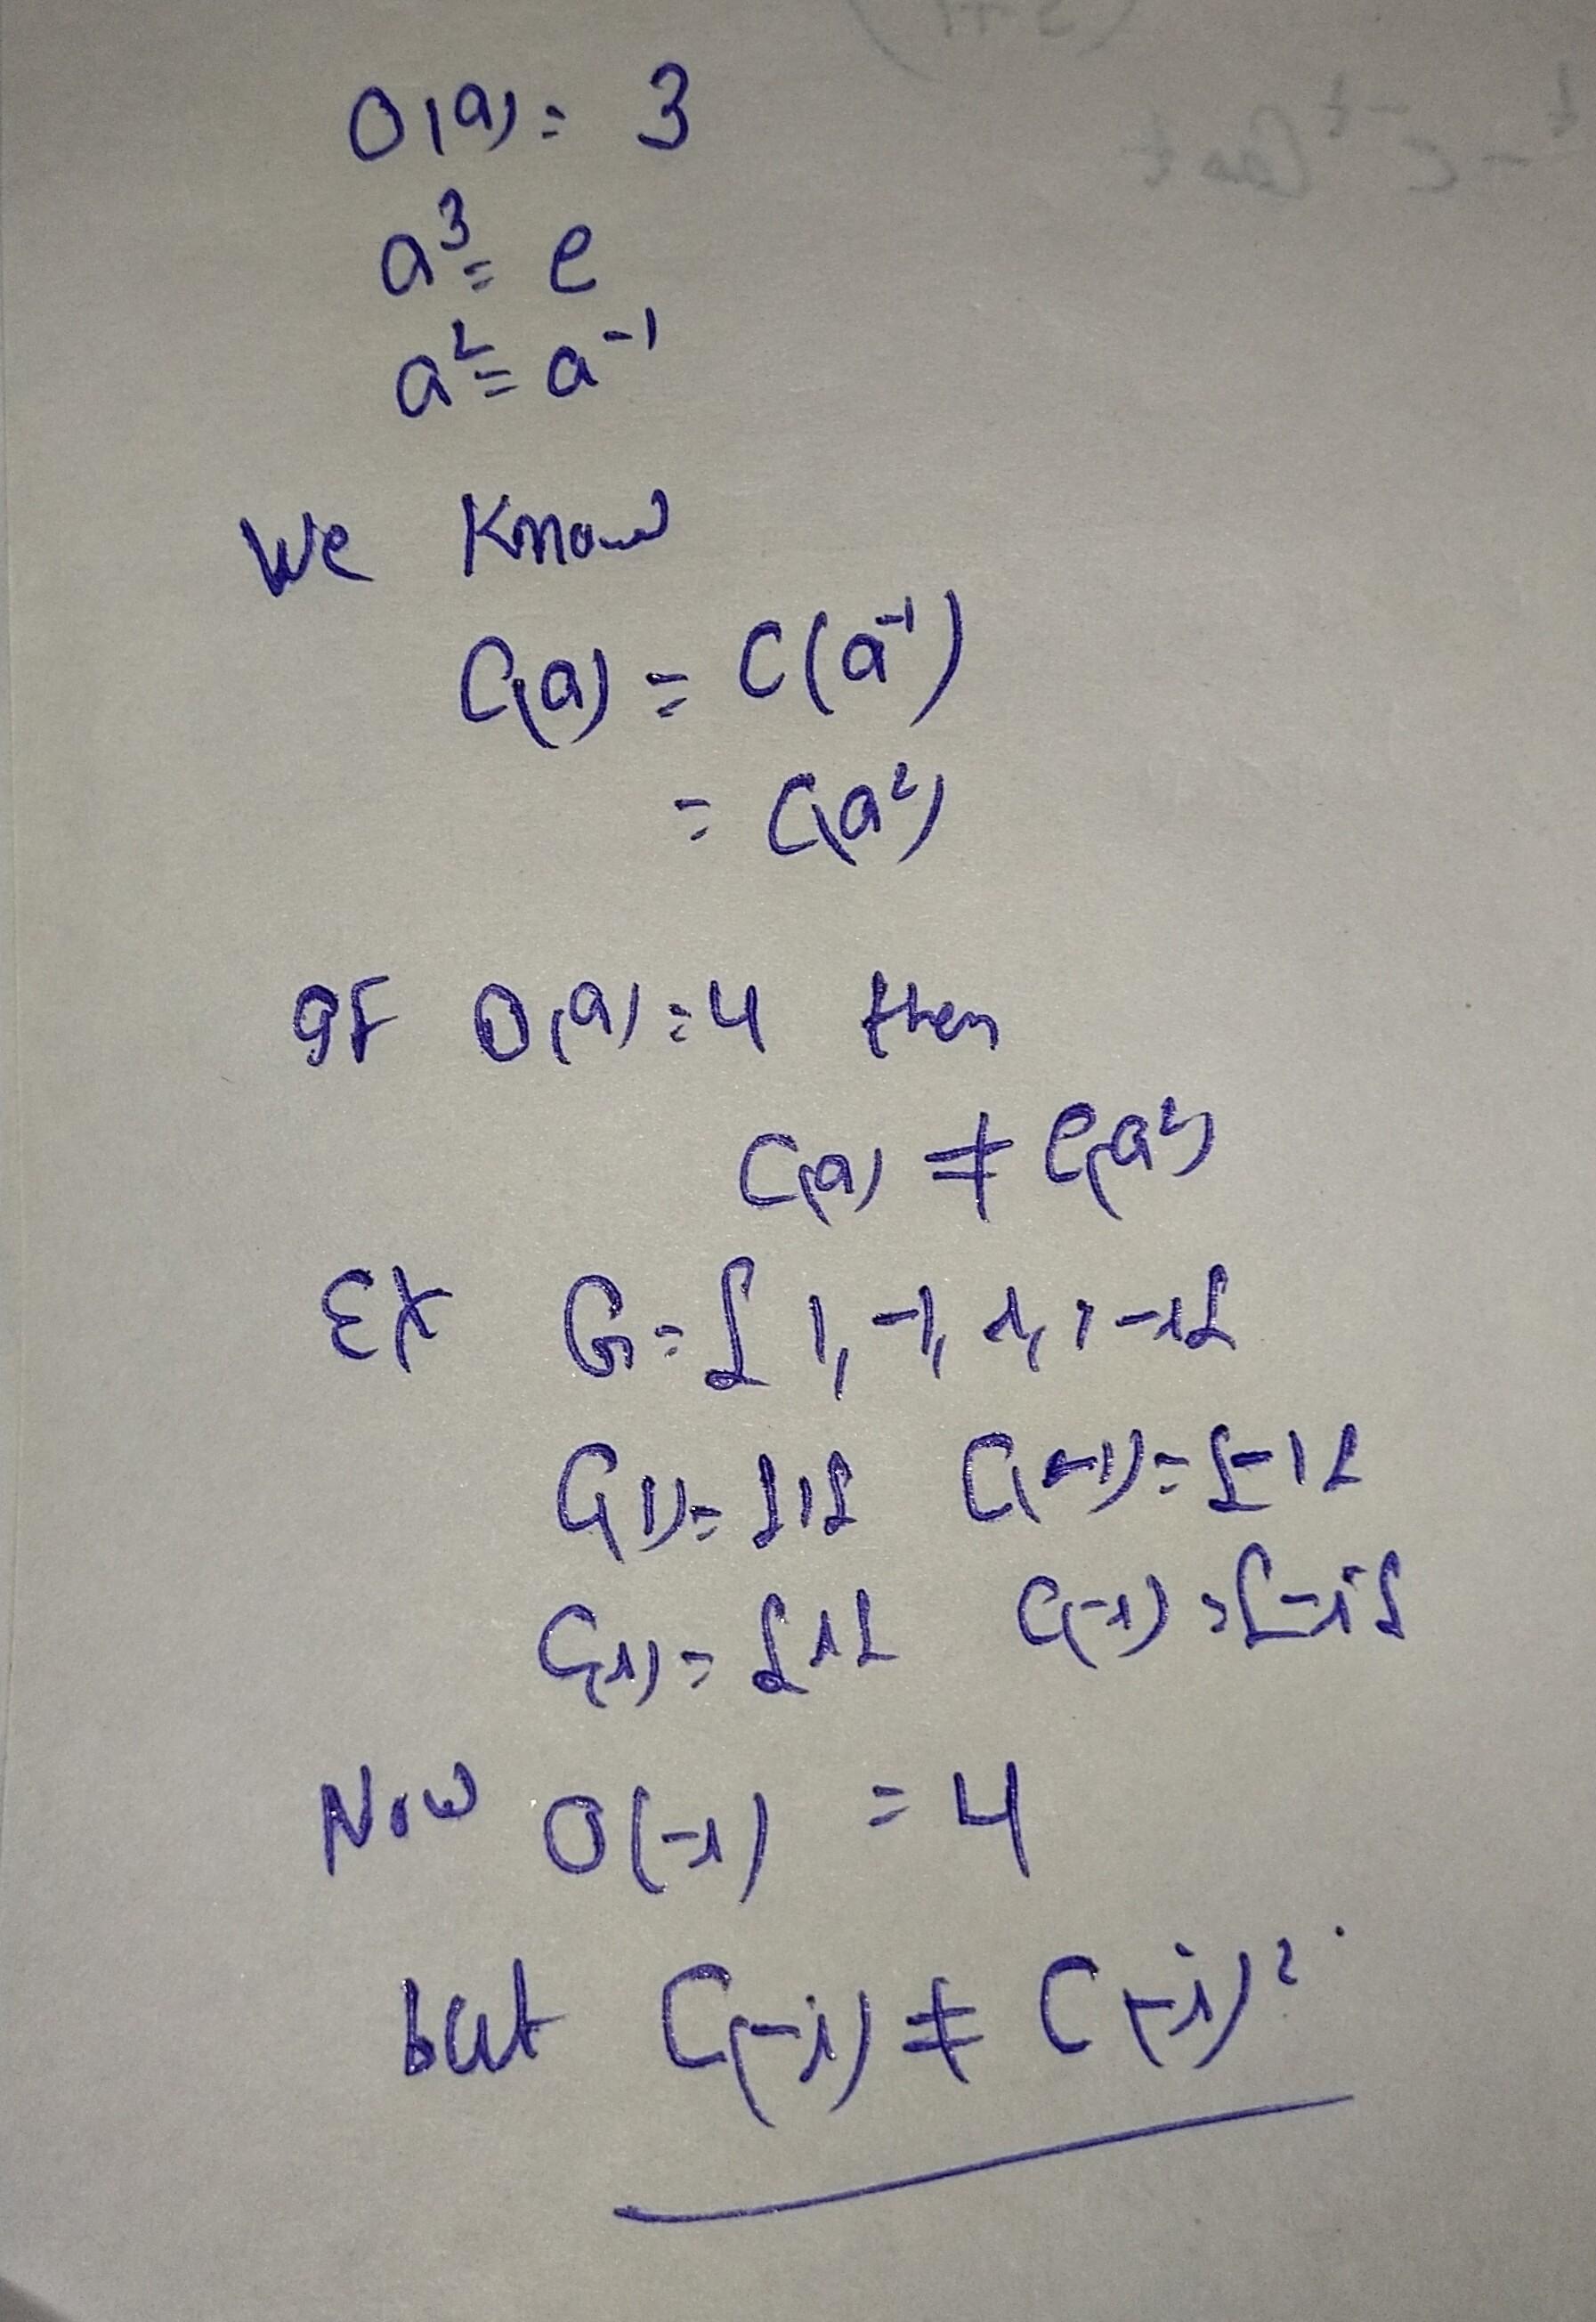 O(a) = 3
a³ = e
a² = a⁻¹
We Know
C(a) = C(a⁻¹)
= C(a²)
If O(a) = 4 then
C(a) ≠ C(a²)
Ex G = { 1, -1, i, -i }
C(1) = {1} C(-1) = {-1}
C(i) = {i} C(-i) = {-i}
Now O(-i) = 4
but C(-i) ≠ C(-i)²